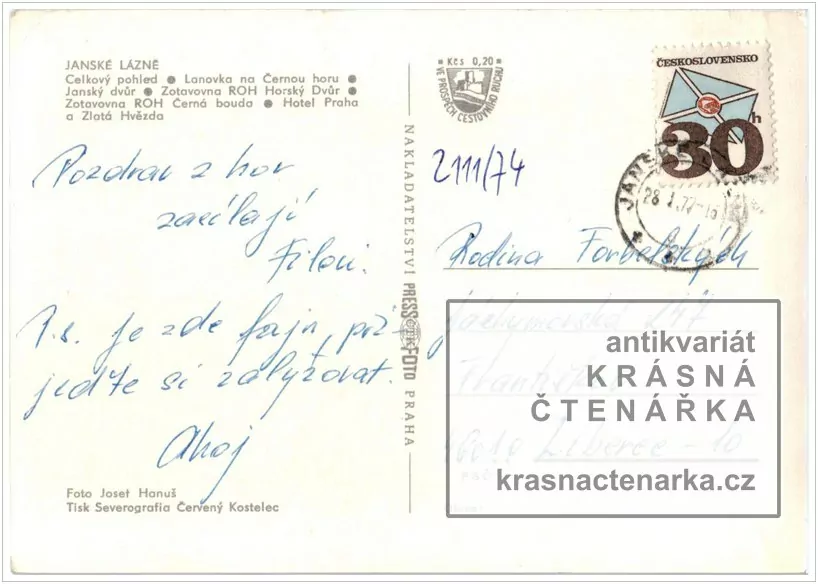 JANSKÉ LÁZNĚ
Celkový pohled ● Lanovka na Černou horu ●
Janský dvůr ● Zotavovna ROH Horský Dvůr ●
Zotavovna ROH Černá bouda ● Hotel Praha
a Zlatá Hvězda
Kčs 0,20
VE PROSPĚCH CESTOVNÍHO RUCHU
ČESKOSLOVENSKO
30h
JANSKÉ
28
2111/74
Pozdrav z hor
zasílají
Filovi.
P.s. je zde fajn, při-
jeďte si zalyžovat.
Ahoj
NAKLADATELSTVÍ PRESSFOTO PRAHA
Rodina Forbelských
Jáchymovská 247
Františkov
46010 Liberec - 10
antikvariát
KRÁSNÁ
ČTENÁŘKA
krasnactenarka.cz
Foto Josef Hanuš
Tisk Severografia Červený Kostelec